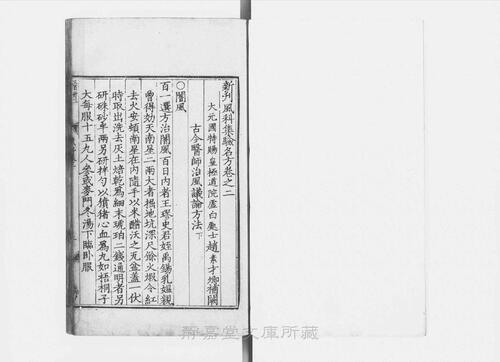 新刊風科集驗名方卷之二
大元國特賜皇極道院虛白處士趙素才卿補闕
古今醫師治風議論方法下
○闇風
百一選方治闇風百日內者王璆史君姪禹錫乳嫗親
曾得効天南星二兩大者掘地坑深尺餘火煅令紅
去火安頓南星在內隨手以米醋沃之瓦盆蓋一伏
時取出洗去灰土焙乾爲細末琥珀二錢通明者另
研硃砂半兩另研拌勻以獖猪心血爲丸如梧桐子
大每服十五丸人參或麥門冬湯下臨臥服
靜嘉堂文庫所藏